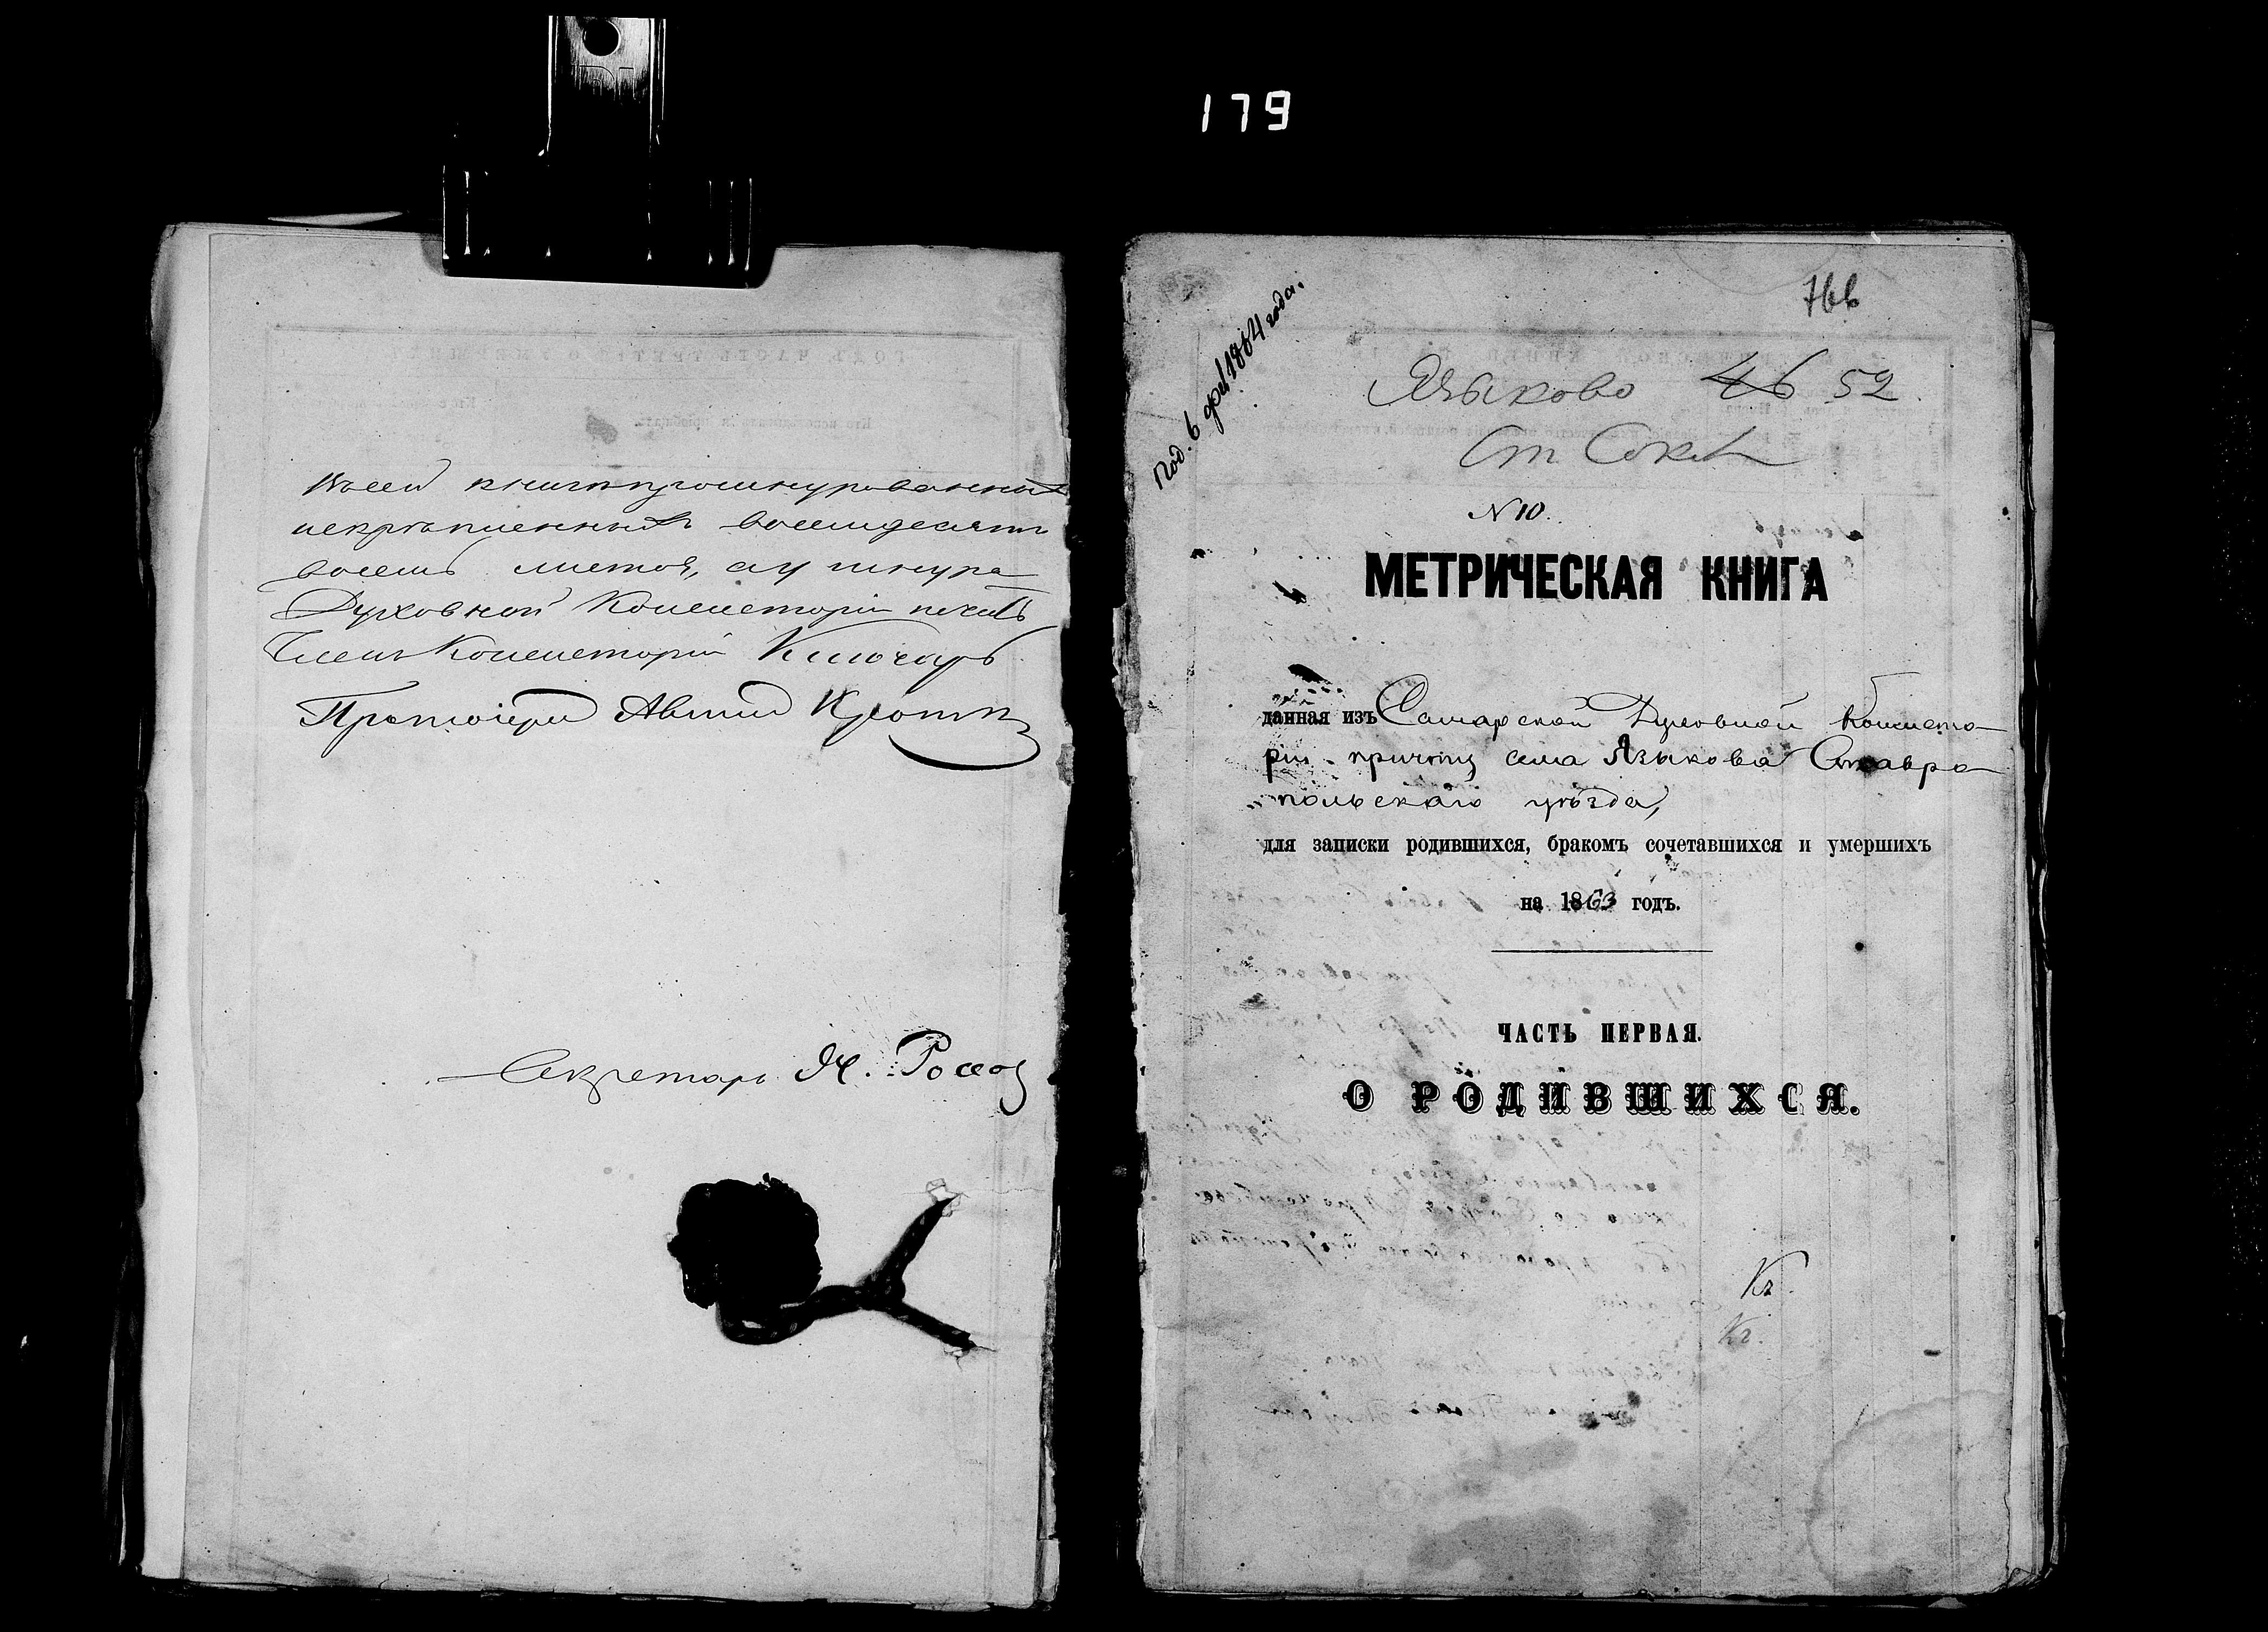 179
Всей книги прошнурованныхъ
искрѣпленныхъ восемьдесятъ
восемь листовъ, а у шнура
Духовной Консисторіи печать
Членъ Консисторіи Ключарь
Протоіерей
Секретарь И.
766
Под. 6 фев 1864 года.
Языково 46 52
Ст
N 10.
МЕТРИЧЕСКАЯ КНИГА
данная изъ Самарской Духовной Консисто-
ріи причту села Языкова Ставро-
польскаго уѣзда,
для записки родившихся, бракомъ сочетавшихся и умершихъ
на 1863 годъ.
ЧАСТЬ ПЕРВАЯ.
О РОДИВШИХСЯ.
Кг.
Кг.